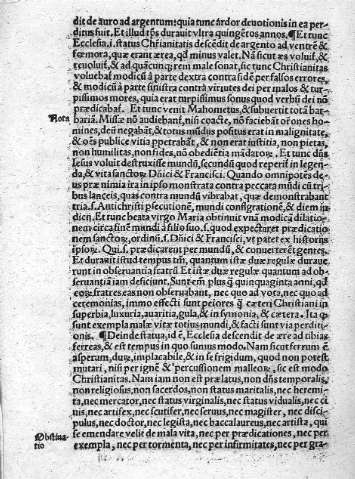 dit de auro ad argentum: quia tunc ardor deuotionis in ea per
dinus fuit. Et illud tꝑs durauit vltra quingētos annos. ¶Et tunc
Ecclesia .i. status Christianitatis descēdit de argento ad ventrē &
fœmora, quæ erant ærea, qđ minus valet. Nā sicut æs
, & ad quācunqꝫ rem male sonat, sic tunc Christianitas
voluebat modicū à parte dextra contra fidē per falsos errores,
& modicū à parte sinistra contra virtutes dei per malos & tur-
pissimos mores, quia erat turpissimus sonus quod verbū dei nō
prædicabat. Et tunc venit Mahometus, & subuertit totā bar-
Nota
bariā. Missæ nō audiebant, nisi coacte, nō faciebāt oꝛ̃ones ho-
mines, deū negabāt, & totus mūdus positus erat in malignitate,
& oẽs publicẽ vitia ꝑpetrabāt, & non erat iustitia, non pietas,
non humilitas, non fides, nō obediētia mādatoꝝ. Et tunc dñs
Iesus voluit destruxisse mundū, secundū quod reperit in legen-
da, & vita sanctoꝝ Dñici & Francisci. Quando omnipotēs de-
us præ nimia ira in ipso monstrata contra peccata mūdi cū tri-
bus lanceis, quas contra mundū vibrabat, quæ demonstrabant
tria .s. Antichristi ꝑsecutionē, mundi cōflagrationē, & diem iu-
dicii. Et tunc beata virgo Maria obtinuit vnā modicā dilatio-
nem circa finē mundi à filio suo .s. quod expectaret prædicatio-
nem sanctoꝝ, ordinū .s. Dñici & Francisci, vt patet ex historiis
ipsoꝝ. Qui .s. prædicarent per mundū, & conuerterēt gentes.
Et durauit istud tempus tm̄, quantum istæ duæ regulæ duraue
runt in obseruantia fratrū. Et istæ duæ regulæ quantum ad ob-
seruantiā iam desciunt. Sunt em̄ plus ꝗ̃ quinquaginta anni, qđ
eoꝝ fratres eas non obseruabant, nec quo ad vota, nec quo ad
ceremonias, immo effecti sunt peiores ꝗ̃ cæteri Christiani in
superbia, luxuria, auaritia, gula, & in symonia, & cætera. Ita ꝙ
sunt exempla malæ vitæ totius mundi, & facti sunt via perditi-
onis. ¶Deinde statua, id ē, Ecclesia descendit de ære ad tibias
ferreas, & est tempus in quo sumus modo. Nam sicut ferrum ē
asperum, durū, implacabile, & in se frigidum, quod non potest
mutari, nisi per ignē & percussionem malleoꝝ, sic est modo
Christianitas. Nam iam non est prælatus, non dñs temporalis,
non religiosus, non sacerdos, non status maritalis, nec heremi-
ta, nec mercator, nec status virginalis, nec status vidualis, nec ci
uis, nec artifex, nec scutifer, nec seruus, nec magister, nec disci-
pulus, nec doctor, nec legista, nec baccalaureus, nec artista, qui
Obstina-
tio
se emendare velit de mala vita, nec per prædicationes, nec per
exempla, nec per tormenta, nec per infirmitates, nec per gra-